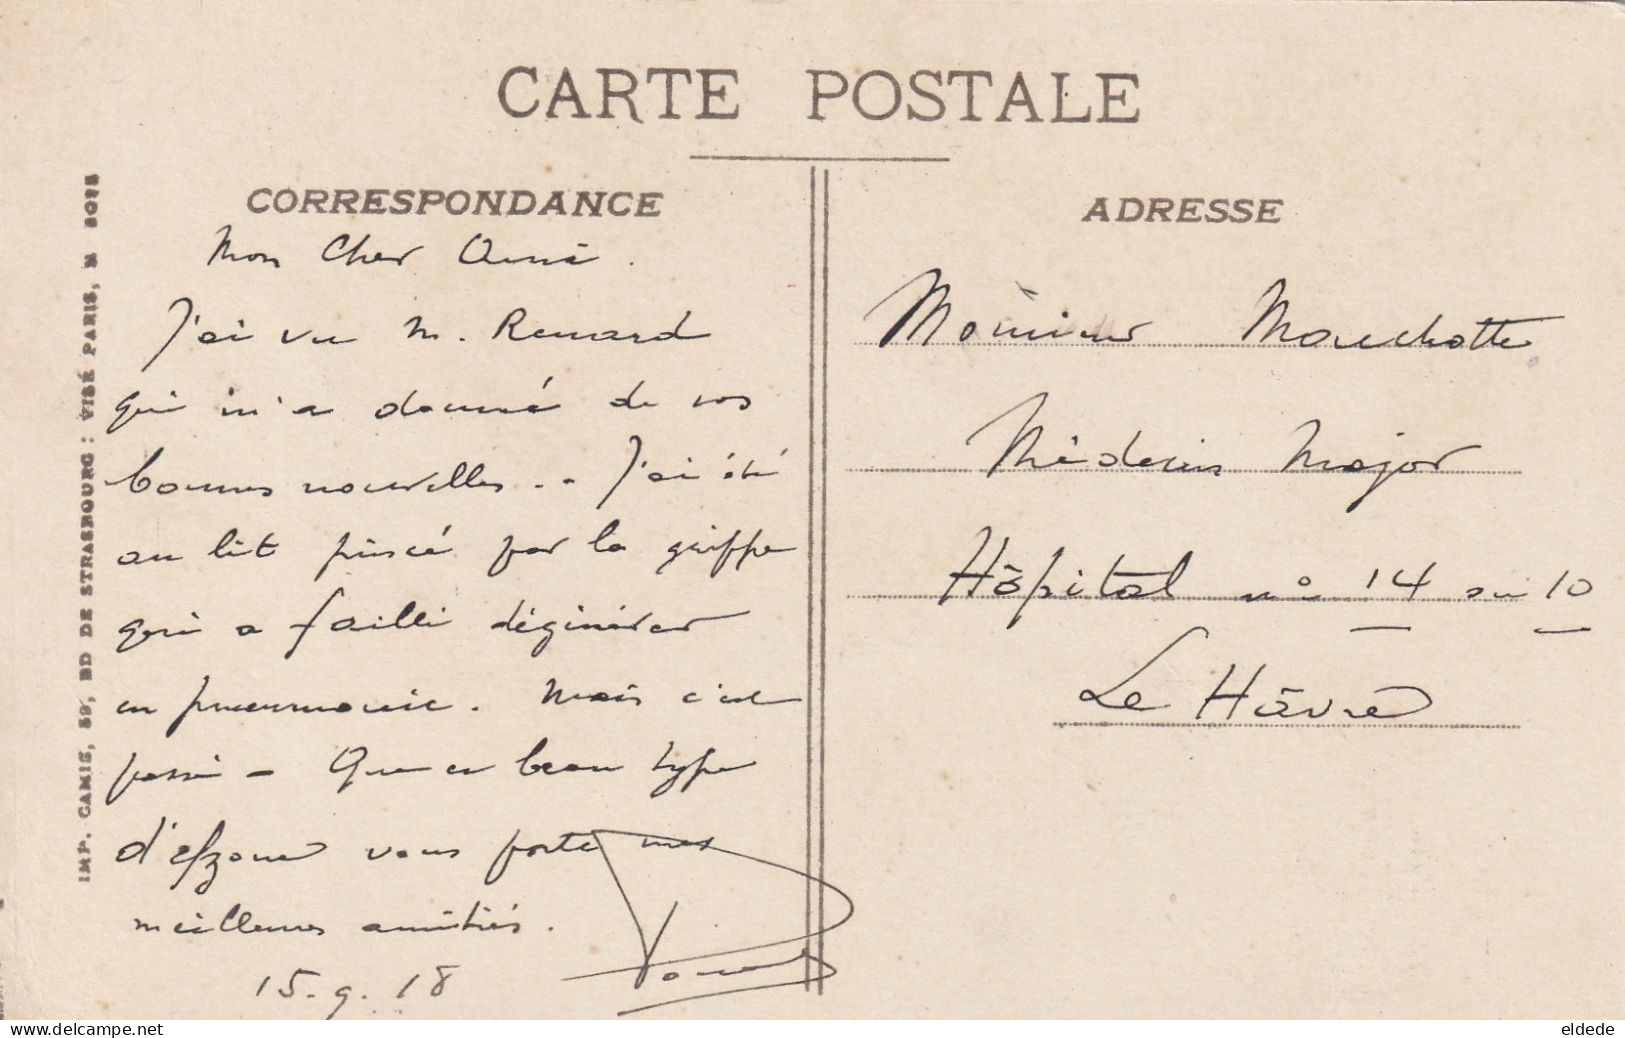 CARTE POSTALE
CORRESPONDANCE
Mon Cher Ami.
J'ai vu M. Renard
qui m'a donné de vos
bonnes nouvelles.. J'ai été
au lit pincé par la grippe
qui a failli dégénérer
en pneumonie. Mais c'est
passé - Que ce beau type
d'efzone vous porte mes
meilleures amitiés.
15.9.18
ADRESSE
Monsieur Mouchotte
Médecin Major
Hôpital no 14 ou 10
Le Hâvre
IMP. CAMIS, 59, BD DE STRASBOURG : VISÉ PARIS, N
www.delcampe.net
eldede